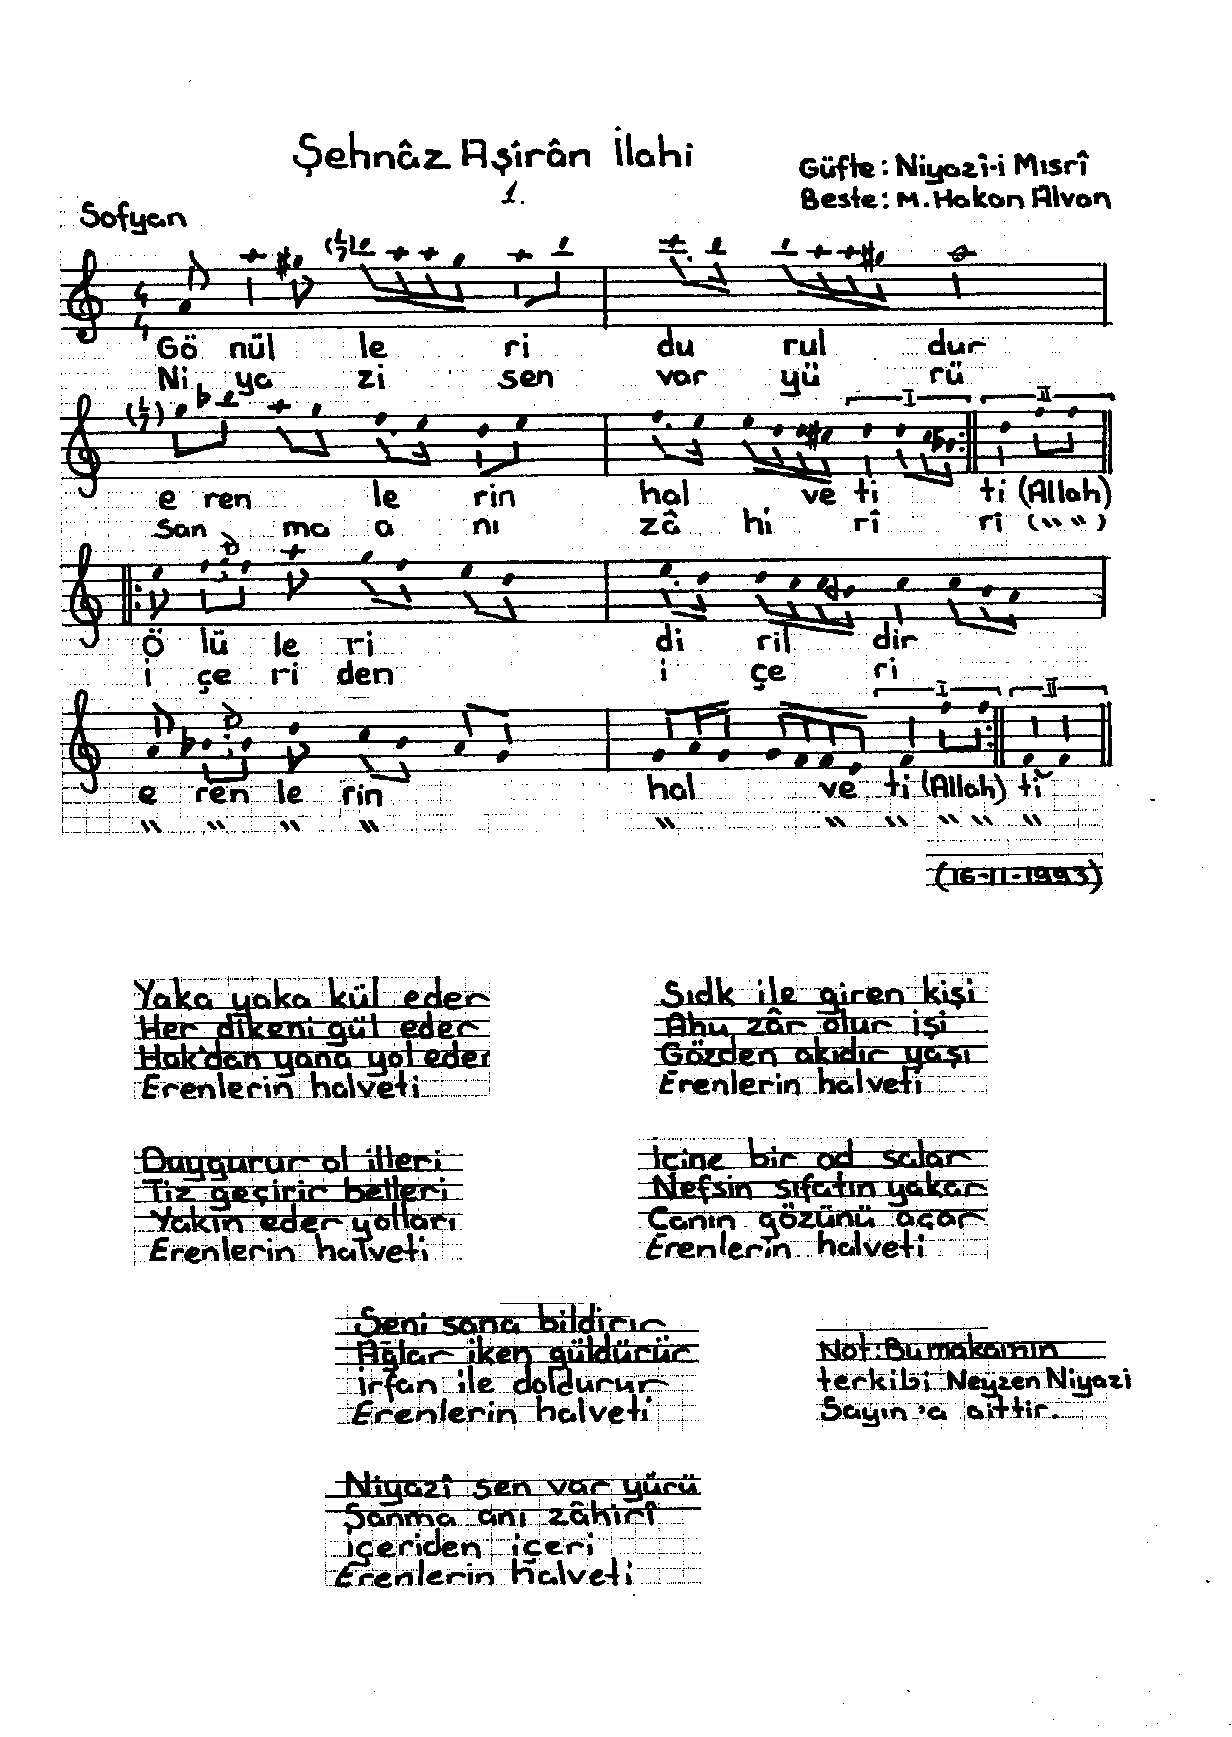 Şehnâz Aşîrân İlahi
1.
Güfte: Niyazî-i Mısrî
Beste: M. Hakan Alvan
Sofyan
4
4
Gö nül le ri du rul dur
Ni ya zi sen var yü rü
I II
e ren le rin hal ve ti ti (Allah)
san ma a nı zâ hi rî rî (" ")
Ö lü le ri di ril dir
i çe ri den i çe ri
I II
e ren le rin hal ve ti (Allah) ti
" " " " " " " " " "
(16-11-1993)
Yaka yaka kül eder
Her dikeni gül eder
Hak'dan yana yol eder
Erenlerin halveti
Sıdk ile giren kişi
Ahu zâr olur işi
Gözden akıdır yaşı
Erenlerin halveti
Duygurur ol illeri
Tiz geçirir belleri
Yakın eder yolları
Erenlerin halveti
İçine bir od salar
Nefsin sıfatın yakar
Canın gözünü açar
Erenlerin halveti
Seni sana bildirir
Ağlar iken güldürür
irfan ile doldurur
Erenlerin halveti
Not: Bu makamın
terkibi Neyzen Niyazi
Sayın'a aittir.
Niyazî sen var yürü
Sanma anı zâhirî
içeriden içeri
Erenlerin halveti